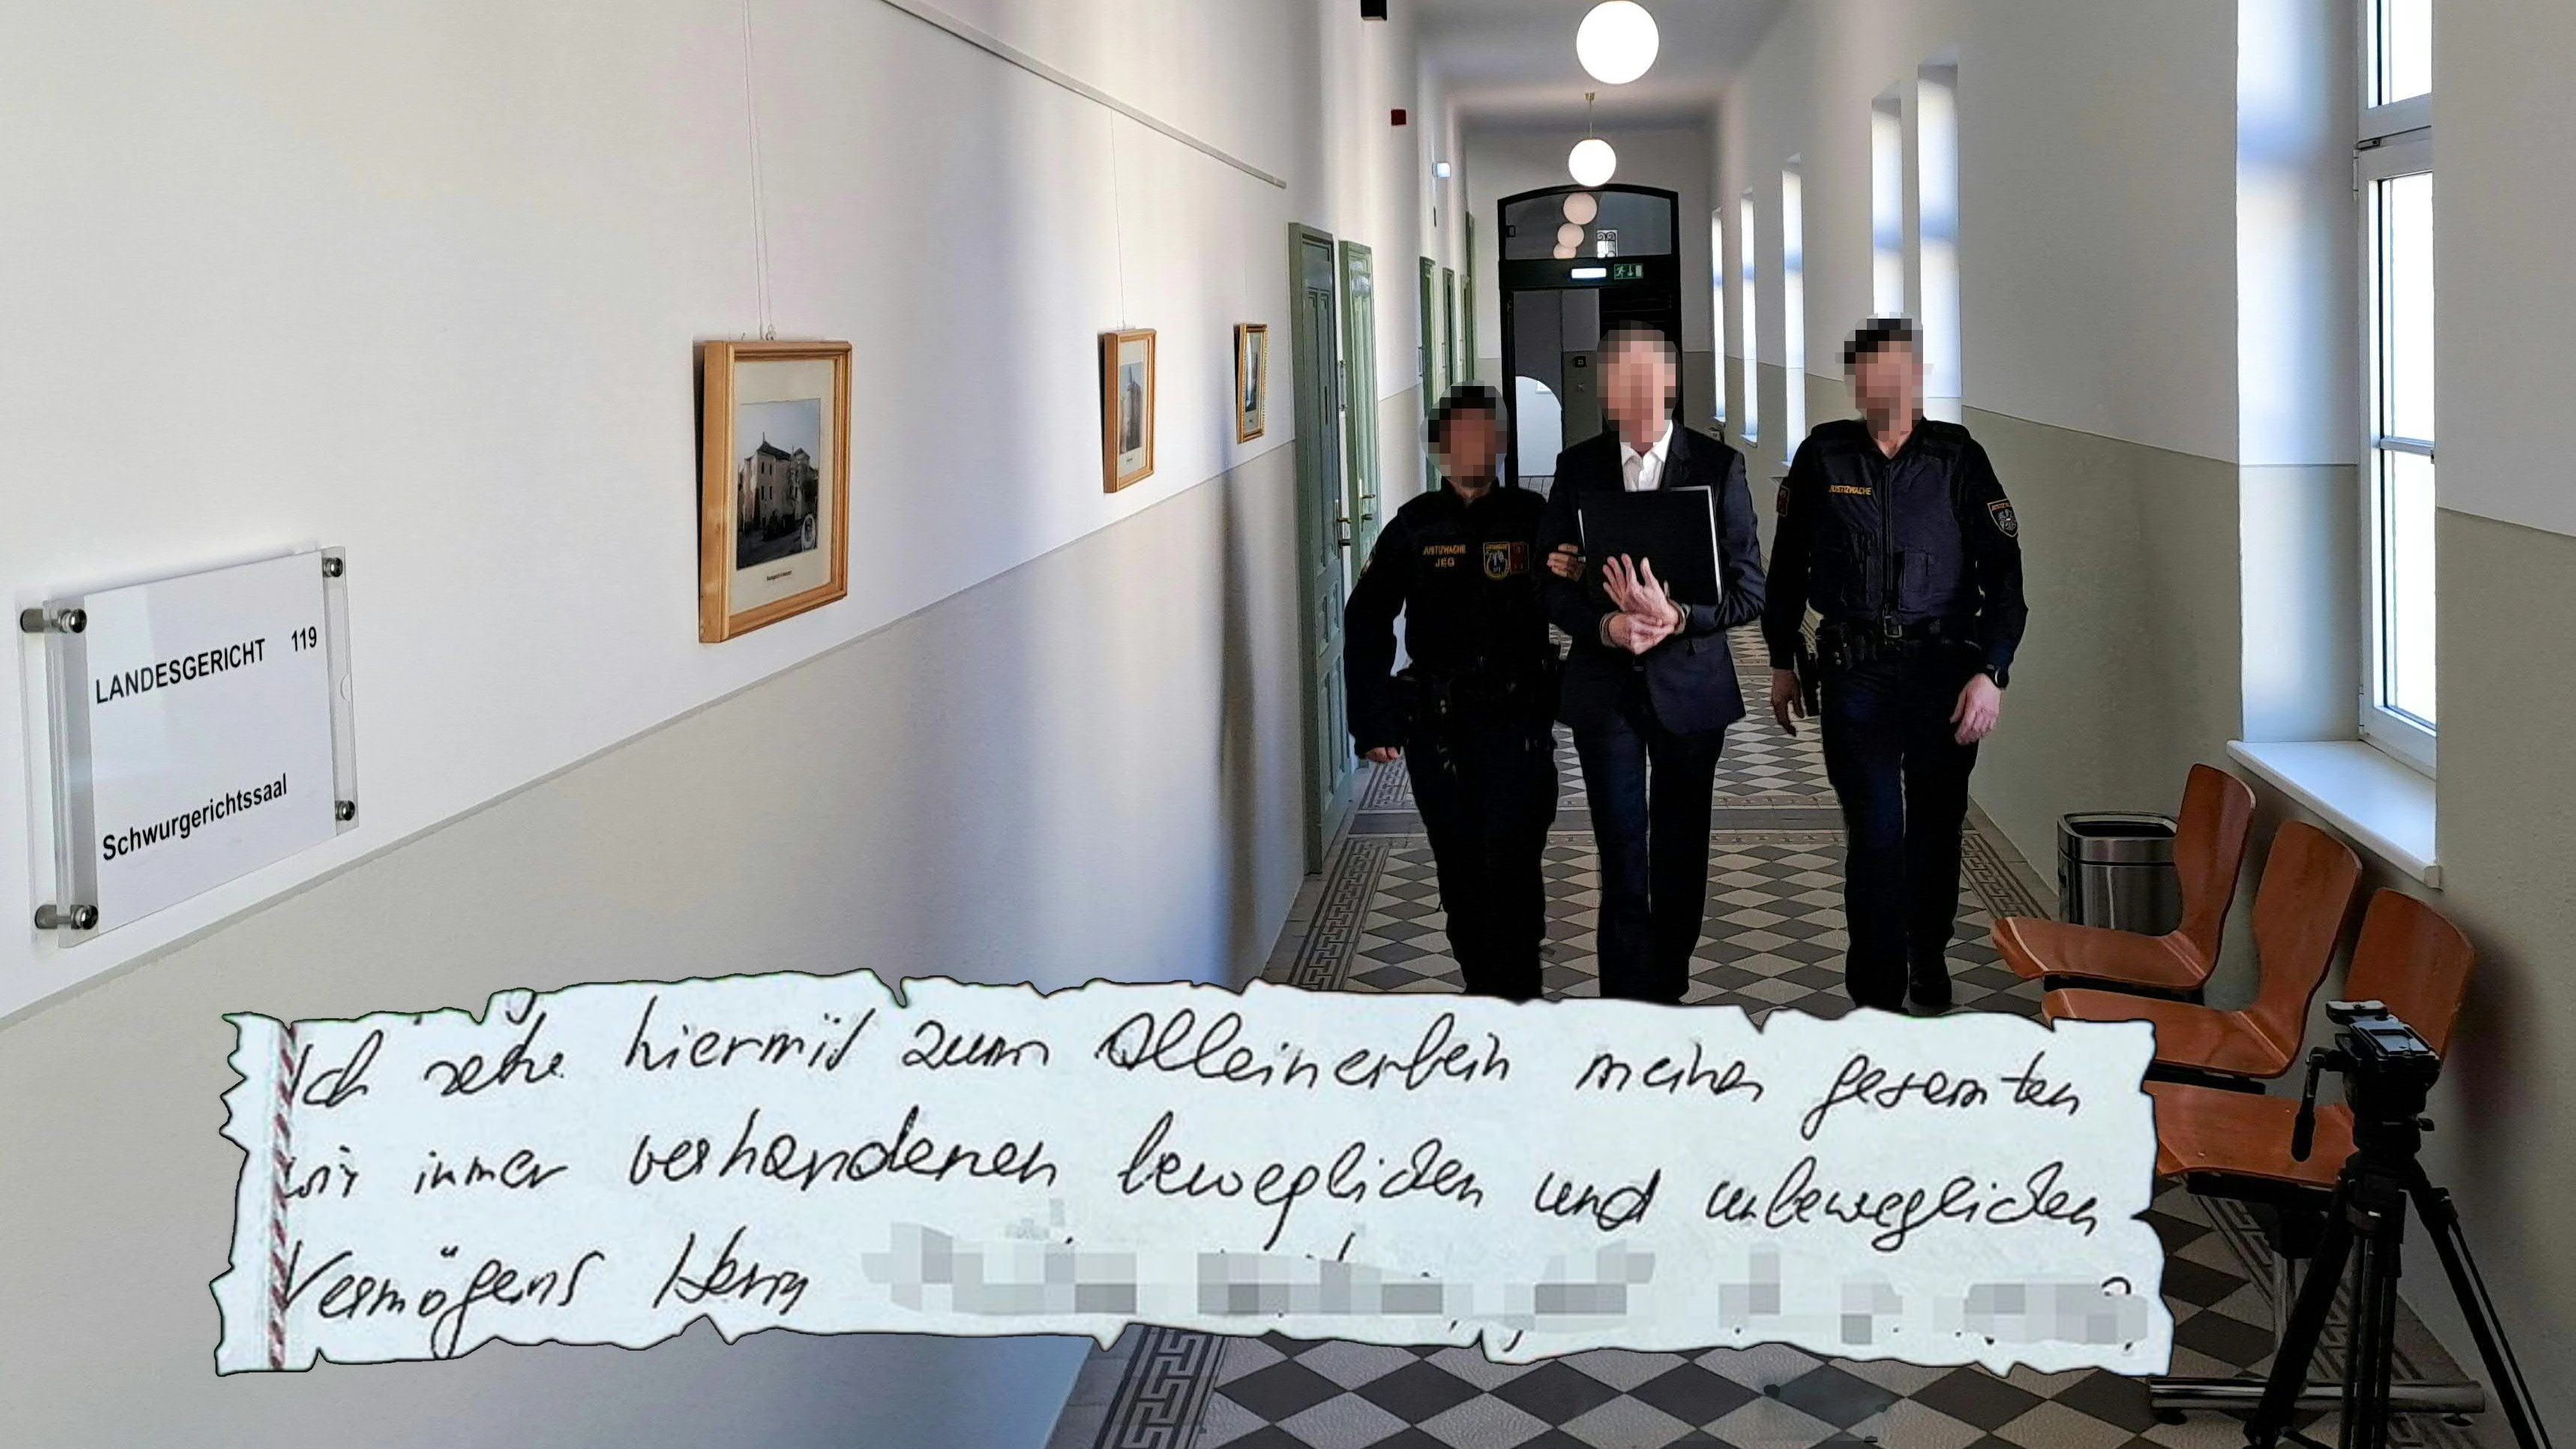 LANDESGERICHT 119
Schwurgerichtssaal
JUSTIZWACHE
JEG
JUSTIZWACHE
Ich setze hiermit zum Alleinerbein meines gesamten
wo immer vorhandenen beweglichen und unbeweglichen
Vermögens Herrn